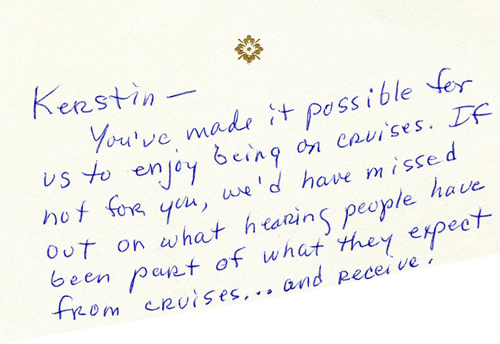 Kerstin —
You've made it possible for
us to enjoy being on cruises. If
not for you, we'd have missed
out on what hearing people have
been part of what they expect
from cruises... and receive.